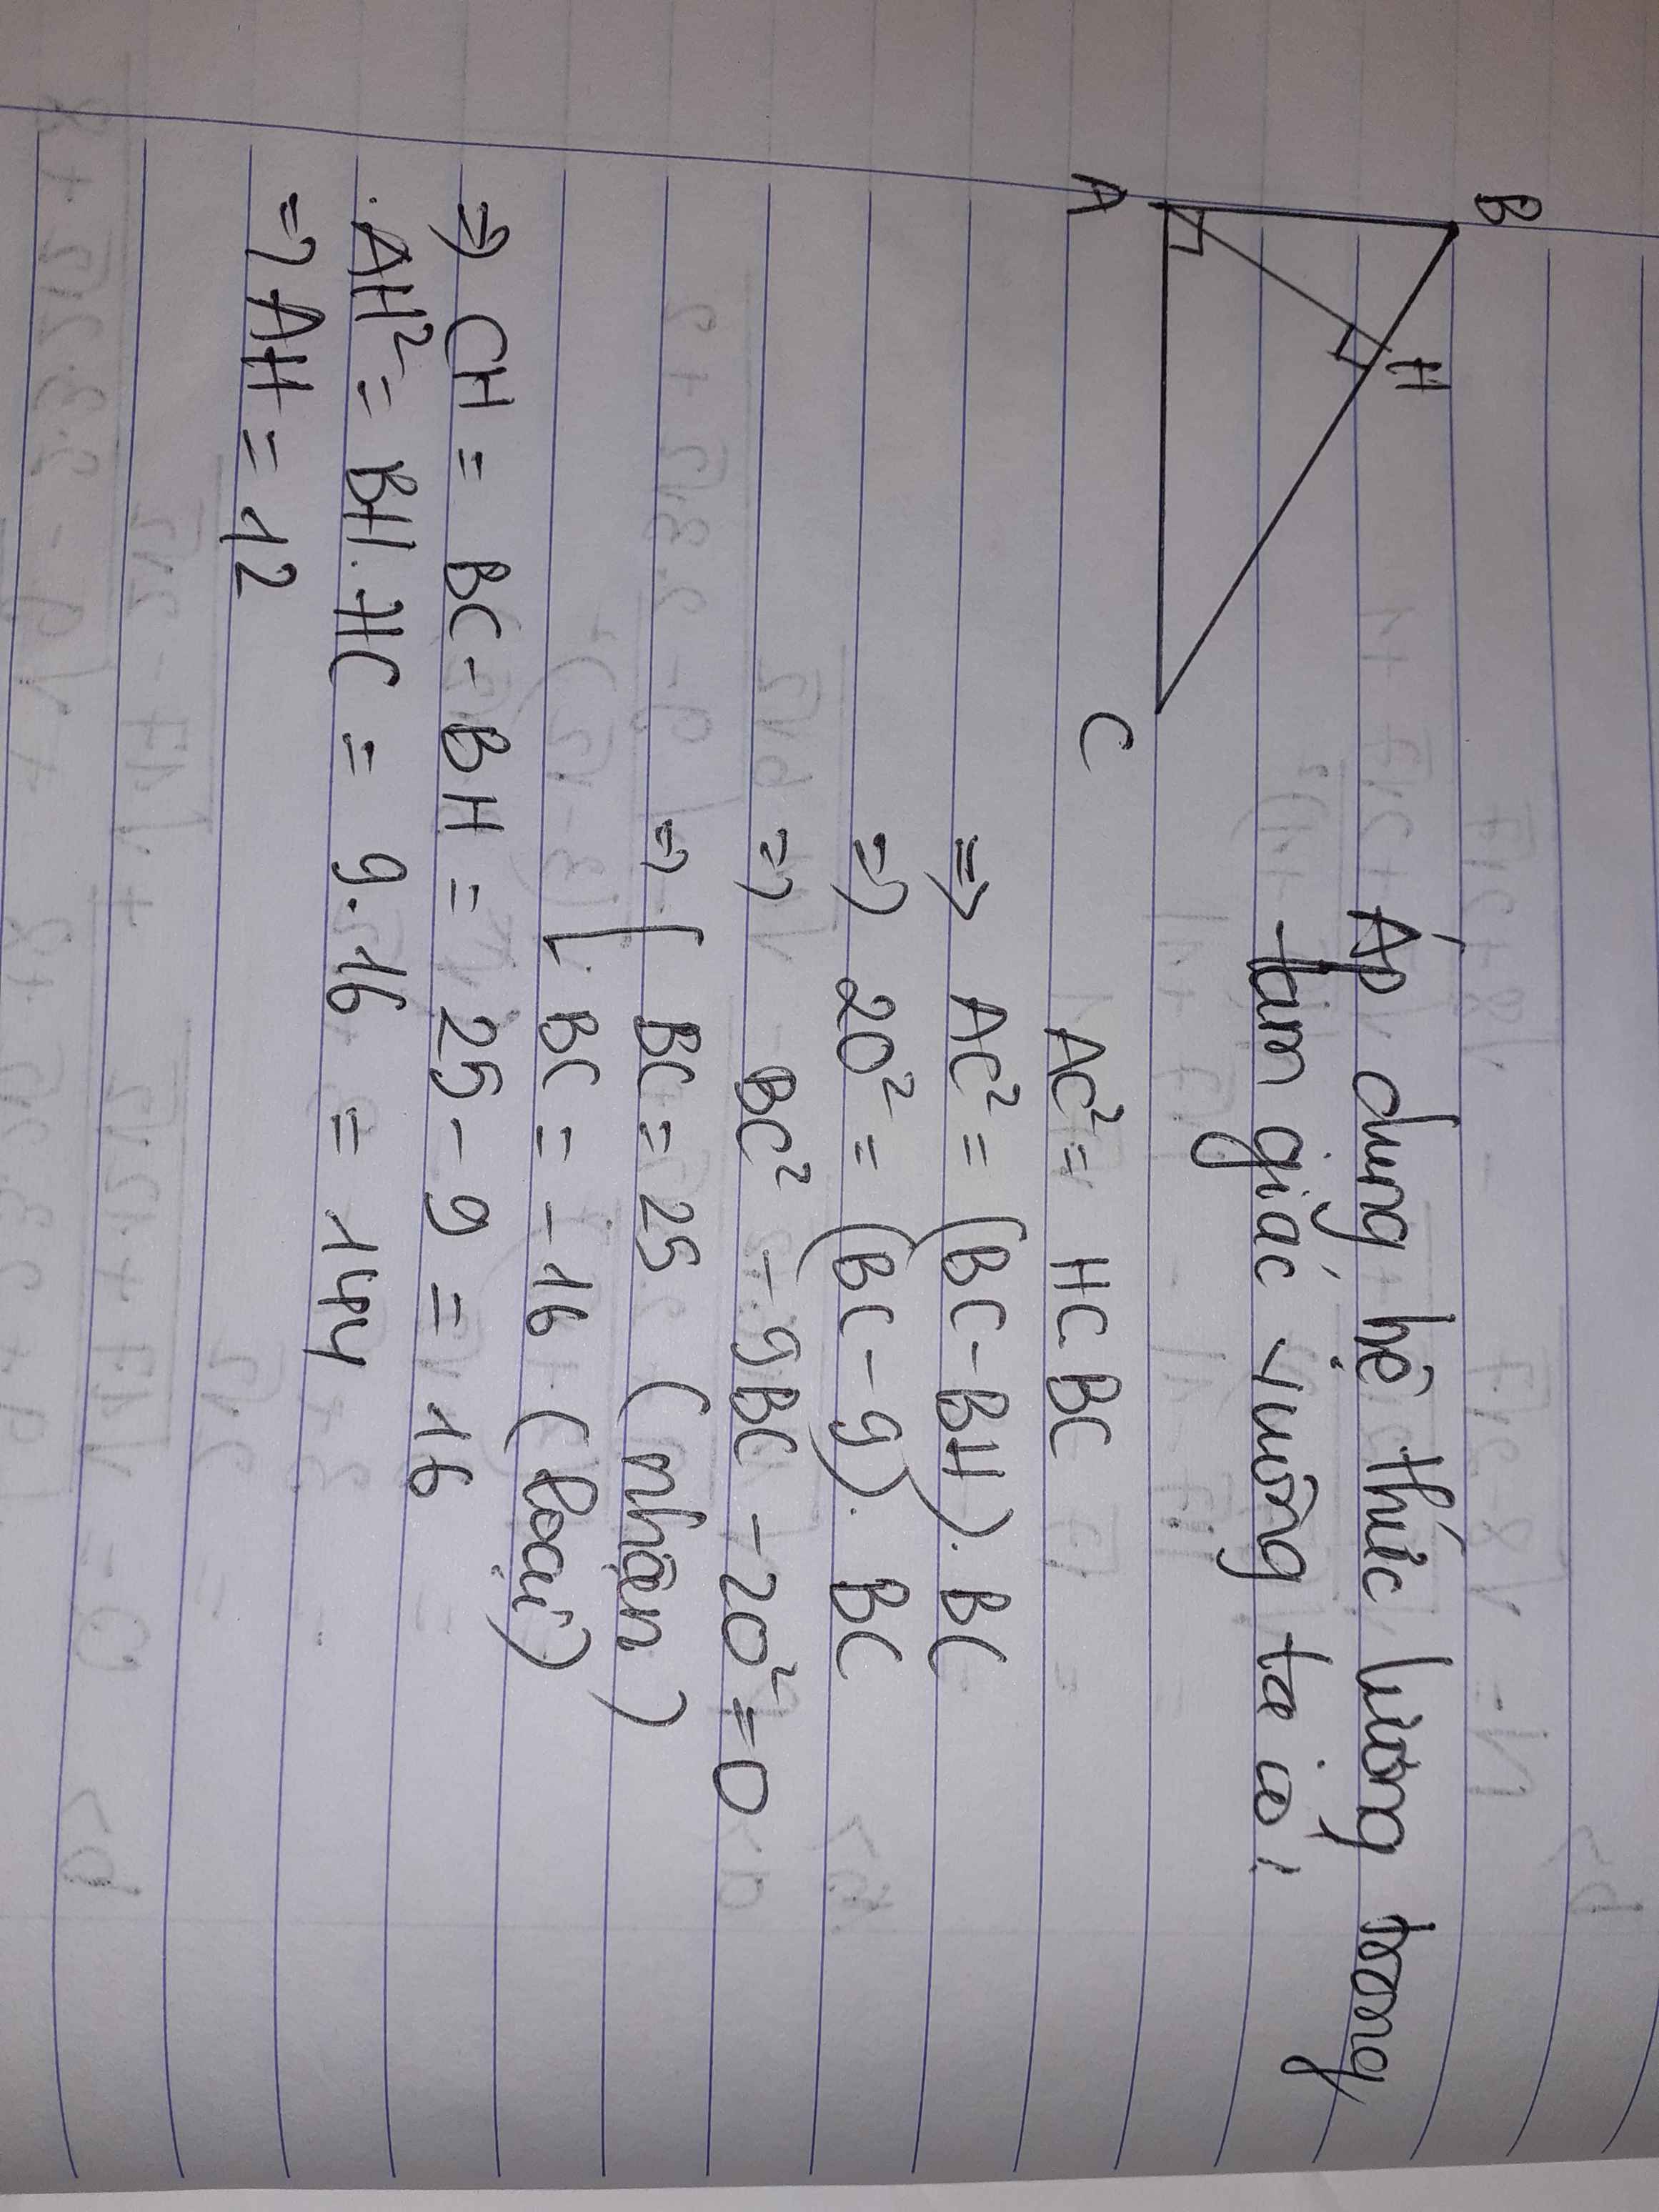 B
H
A
C
Áp dụng hệ thức lượng trong
tam giác vuông ta có:
AC² = HC BC
=> AC² = (BC - BH). BC
=> 20² = (BC - 9). BC
=> BC² - 9BC - 20² = 0
=> [ BC = 25 (nhận)
BC = -16 (loại)
=> CH = BC - BH = 25 - 9 = 16
. AH² = BH. HC = 9.16 = 144
=> AH = 12